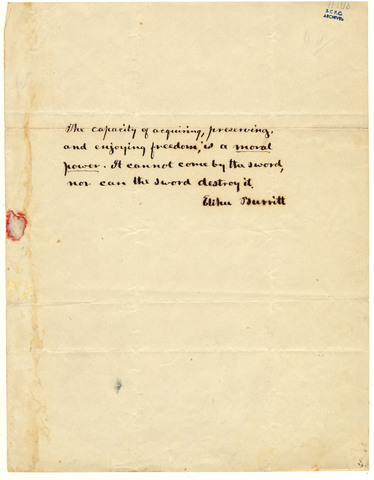 S.C.P.C.
ARCHIVES
The capacity of acquiring, preserving,
and enjoying freedom, is a moral
power. It cannot come by the sword,
nor can the sword destroy it.
Elihu Burritt